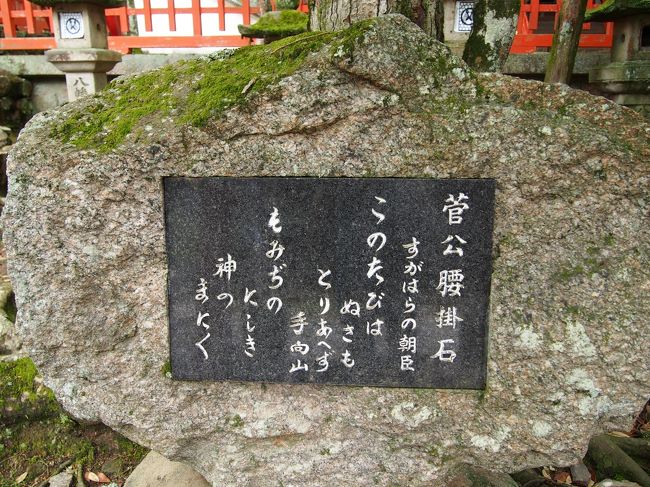 菅公腰掛石
すがはらの朝臣
このたびは
ぬさも
とりあへず
手向山
もみぢの
にしき
神の
まにく
八幡